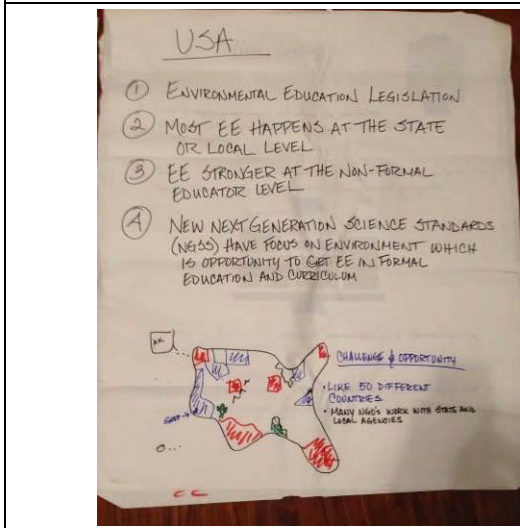 USA
① ENVIRONMENTAL EDUCATION LEGISLATION
② MOST EE HAPPENS AT THE STATE
OR LOCAL LEVEL
③ EE STRONGER AT THE NON-FORMAL
EDUCATOR LEVEL
④ NEW NEXT GENERATION SCIENCE STANDARDS
(NGSS) HAVE FOCUS ON ENVIRONMENT WHICH
IS OPPORTUNITY TO GET EE IN FORMAL
EDUCATION AND CURRICULUM
AK
CHALLENGE & OPPORTUNITY
• LIKE 50 DIFFERENT
COUNTRIES
• MANY NGO'S WORK WITH STATE AND
LOCAL AGENCIES